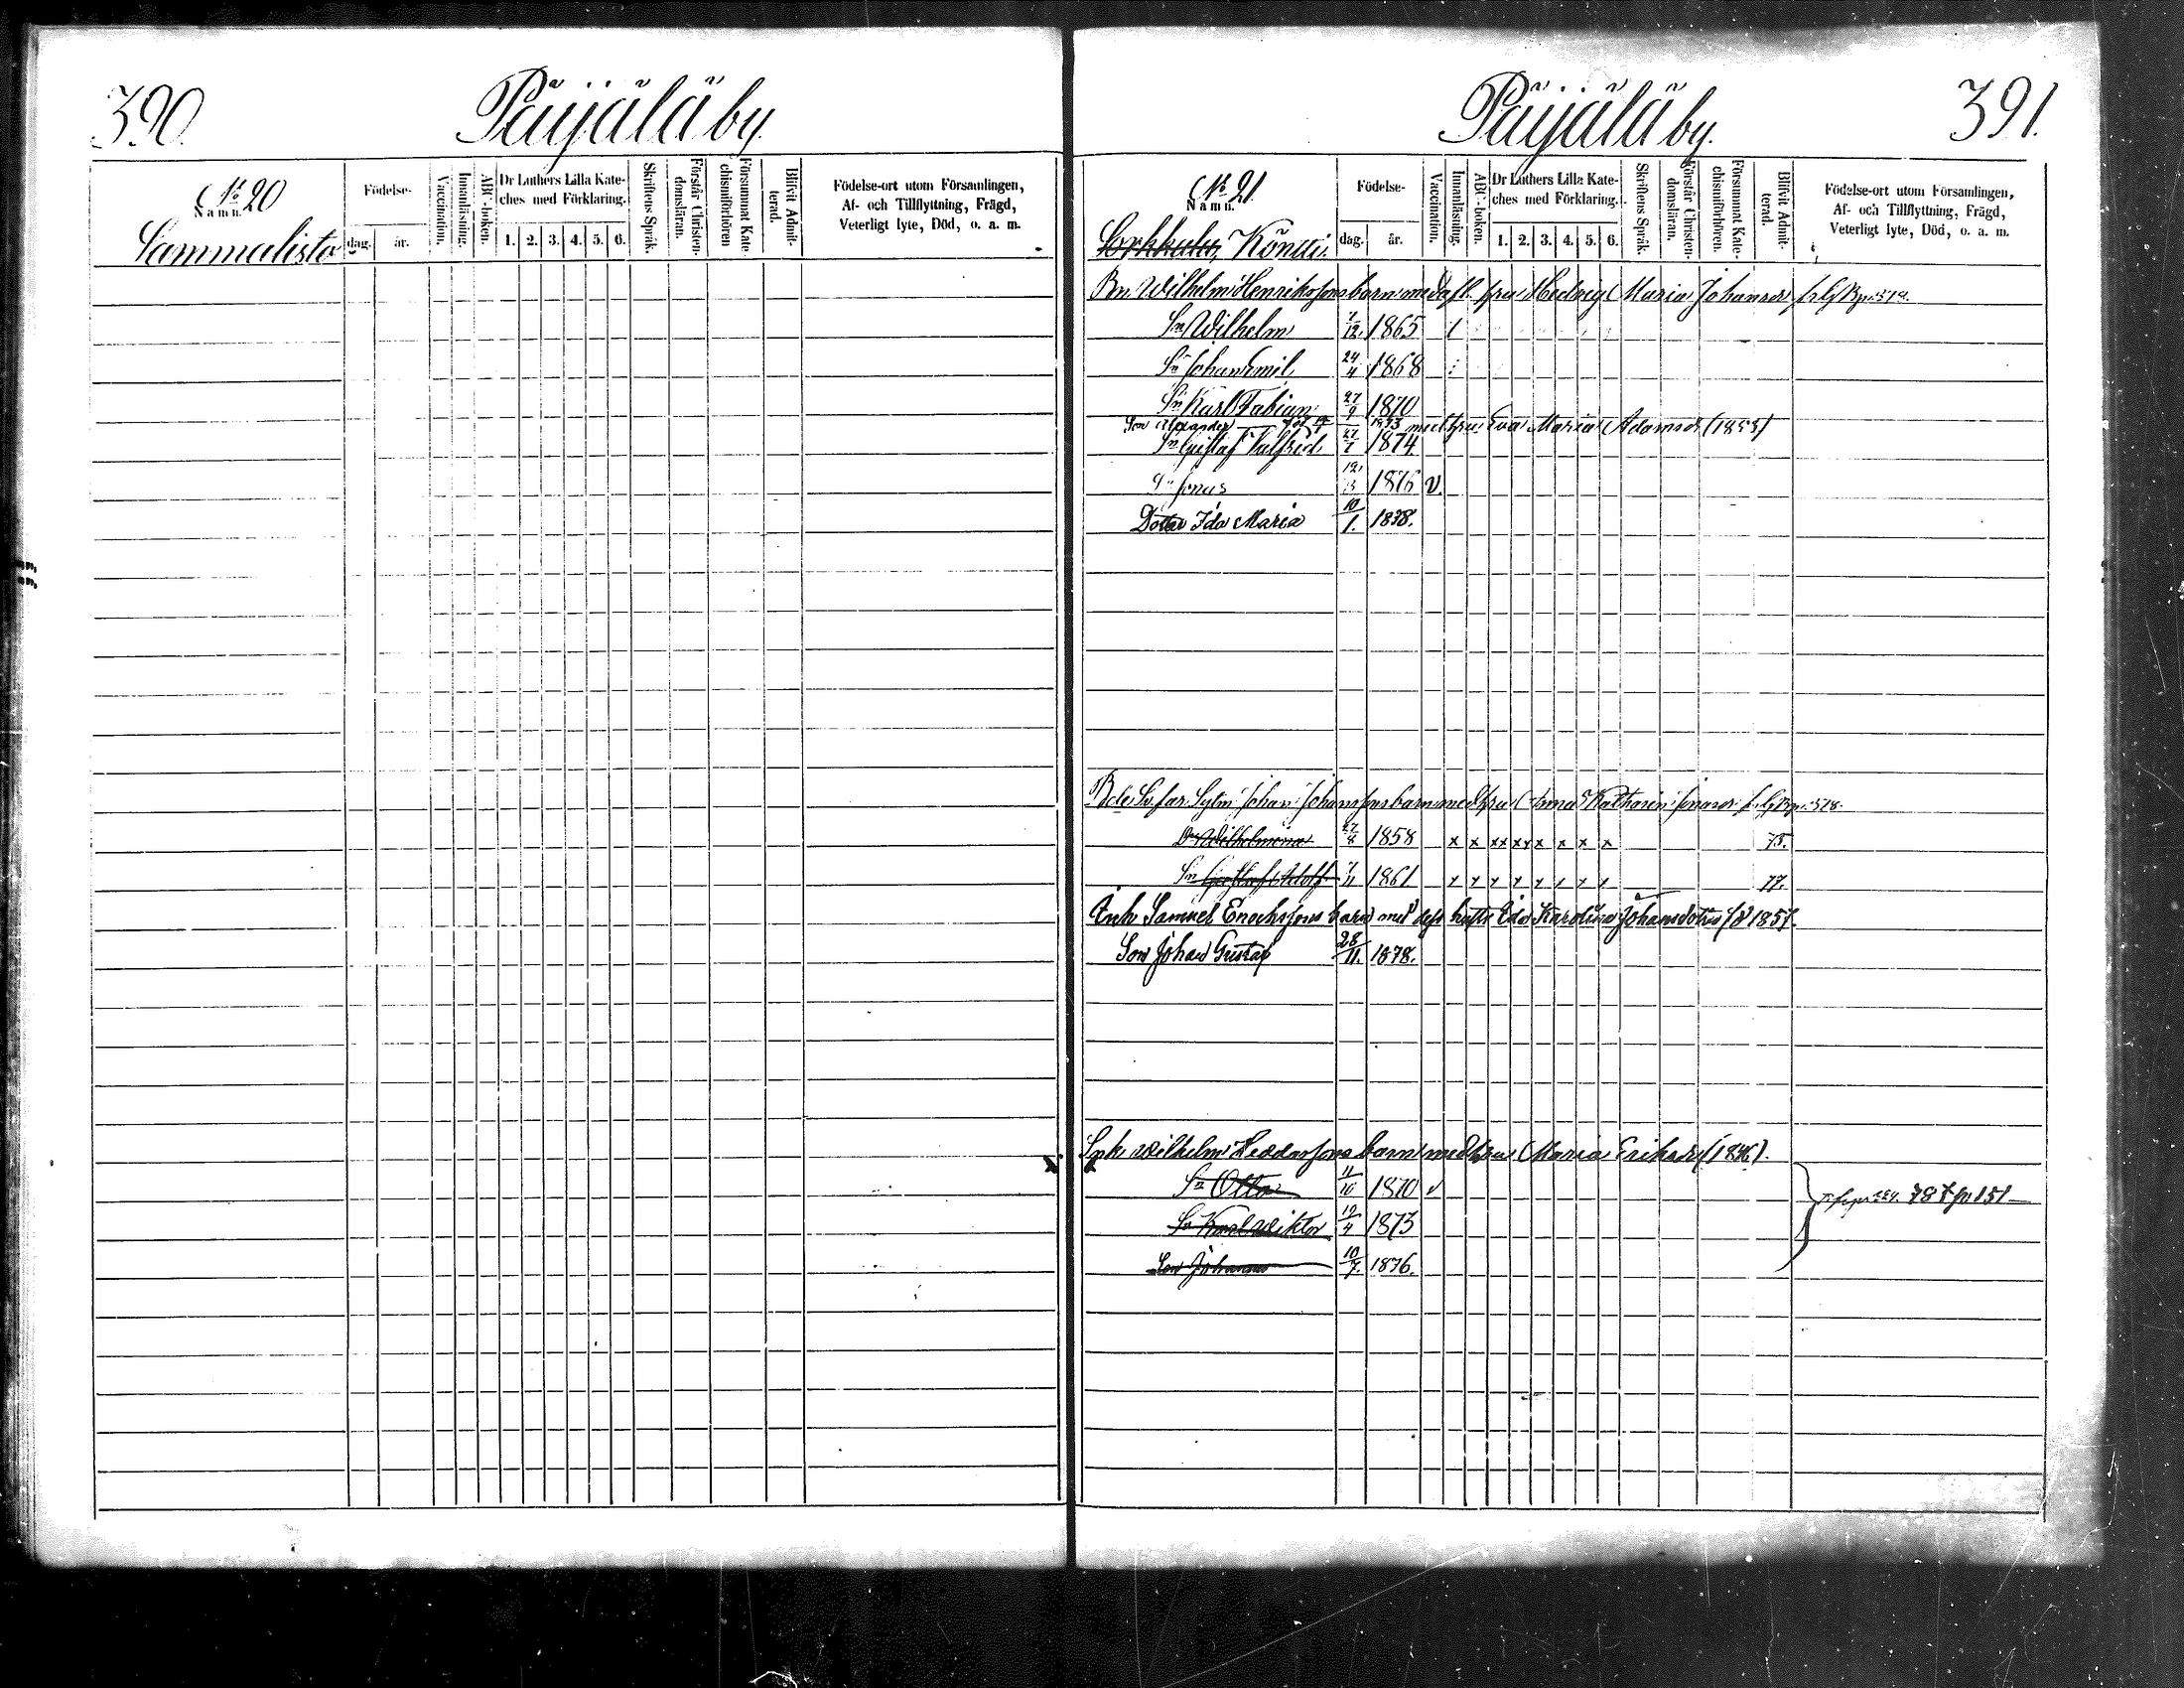 390.
Päijälä by.
No 20
Namn.
Sammalisto
Födelse-
dag.
år.
Vaccination.
Innanläsning.
ABC-boken.
Dr Luthers Lilla Kate-
ches med Förklaring.
1. 2. 3. 4. 5. 6.
Skriftens Språk.
Förstår Christen-
domsläran.
Försummat Kate-
chismiförhören
Blifvit Admit-
terad.
Födelse-ort utom Församlingen,
Af- och Tillflyttning, Frägd,
Veterligt lyte, Död, o. a. m.
Päijälä by.
391.
No 21.
Namn.
Könni.
Födelse-
dag.
år.
Vaccination.
Innanläsning.
ABC-boken.
Dr Luthers Lilla Kate-
ches med Förklaring.
1. 2. 3. 4. 5. 6.
Skriftens Språk.
Förstår Christen-
domsläran.
Försummat Kate-
chismiförhören.
Blifvit Admit-
terad.
Födelse-ort utom Församlingen,
Af- och Tillflyttning, Frägd,
Veterligt lyte, Död, o. a. m.
Bn. Wilhelm Henrikssons barn med hru Hedvig Maria Johansdr
Sn Wilhelm 7/12 1865
Sn Johan Emil 24/4 1868
Sn Karl Fabian 27/9 1870
Son Alexander med hru Eva Maria Adamsdr
Sn Gustaf Valfrid 27/1 1874
Sn Jonas 1876 v
Dotter Ida Maria 10/1. 1878.
Johan Johanssons barn med hru Anna Katharin
Dr Wilhelmina 27/8 1858 x x xx xx x x x x 75.
Sn Gustaf Adolf 7/11 1861 77.
Samuel Enochssons barn med dess hustru Ida Karolina Johansdotter
Son Johan Gustaf 28/11. 1878.
Wilhelm barn med hru Maria Eriksdr (1846).
Sn Otto 11/10 1870 v
Sn Karl Wiktor 19/4 1873
Son Johannes 10/7. 1876.